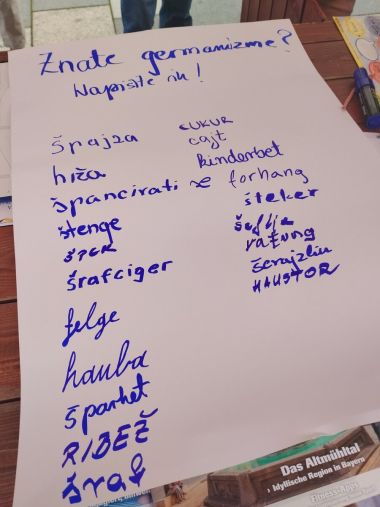 Znate germanizme?
Napišite ih!
špajza
hiža
špancirati se
štenge
špek
šrafciger
felge
hauba
šparhet
RIBEŽ
šraf
CUKUR
cajt
kinderbet
forhang
šteker
šeflja
ratung
HAUSTOR
Das Altmühltal
Idyllische Region in Bayern
Fitness-Apps